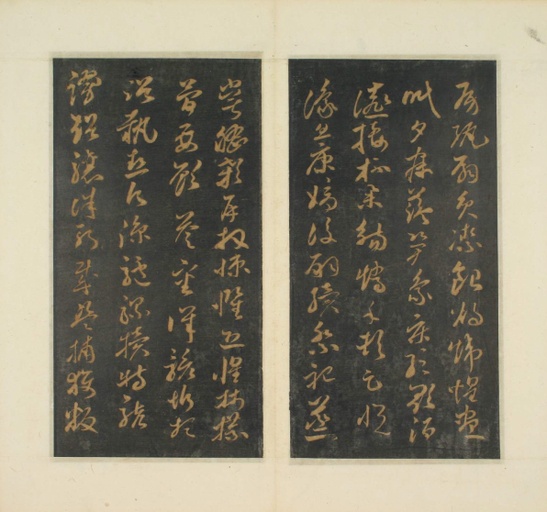 房紈扇員潔銀燭煒煌晝
眠夕寐藍筍象床弦歌酒
讌接杯舉觴矯手頓足悅
豫且康嫡後嗣續祭祀蒸
嘗稽顙再拜悚懼恐惶牋牒
簡要顧答審詳骸垢想
浴執熱願涼驢騾犢特駭
躍超驤誅斬賊盜捕獲叛